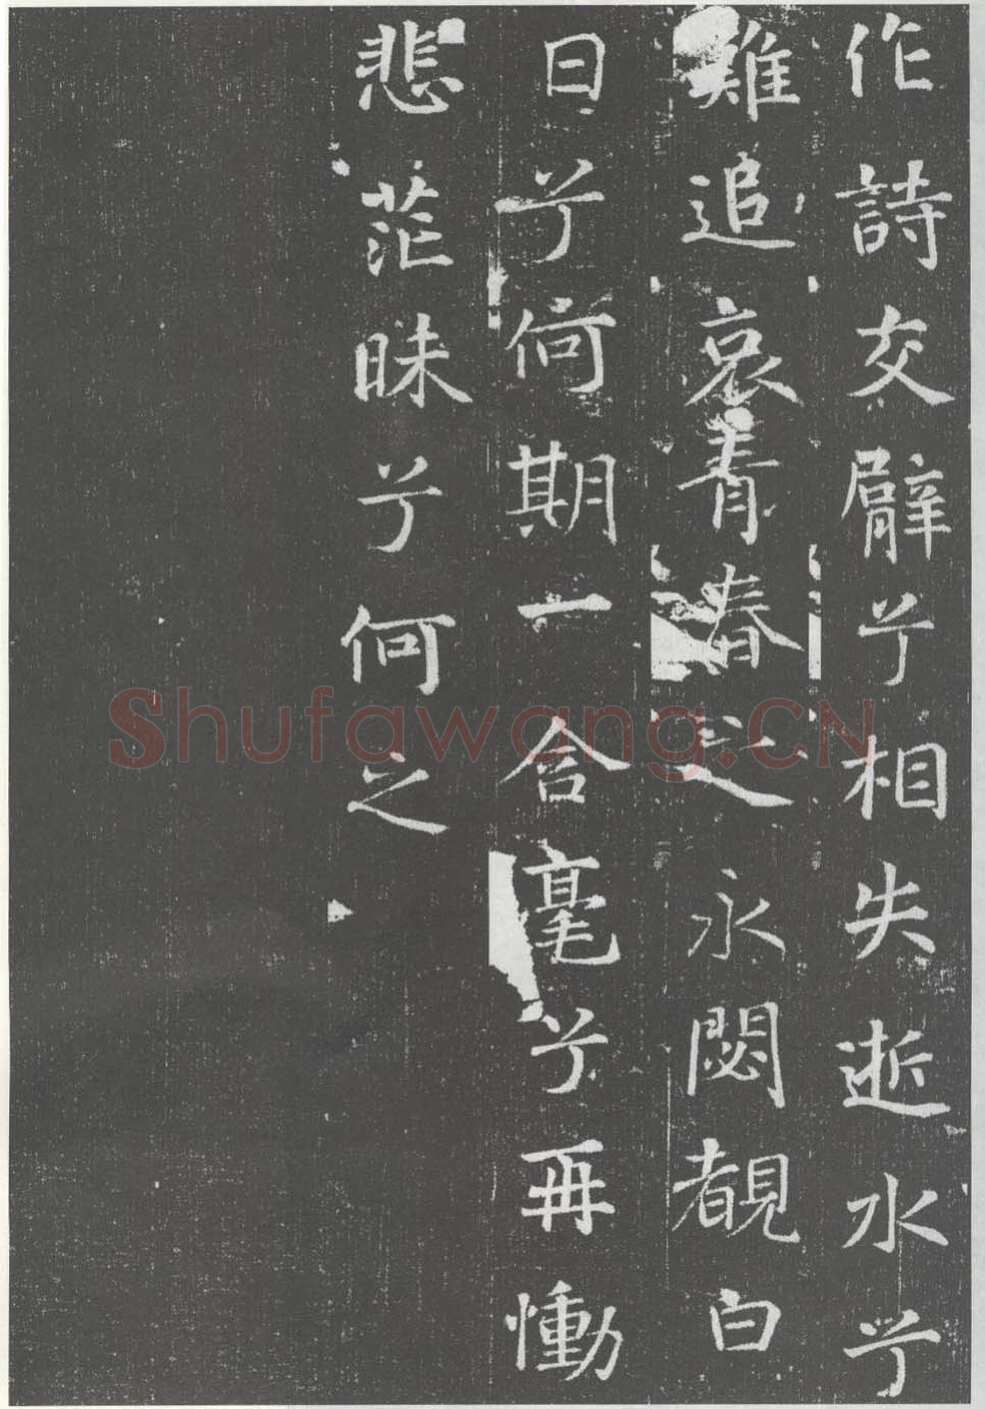 作詩交臂兮相失逝水兮
難追哀青春之永閟覩白
日兮何期一含毫兮再慟
悲茫昧兮何之
Shufawang.CN